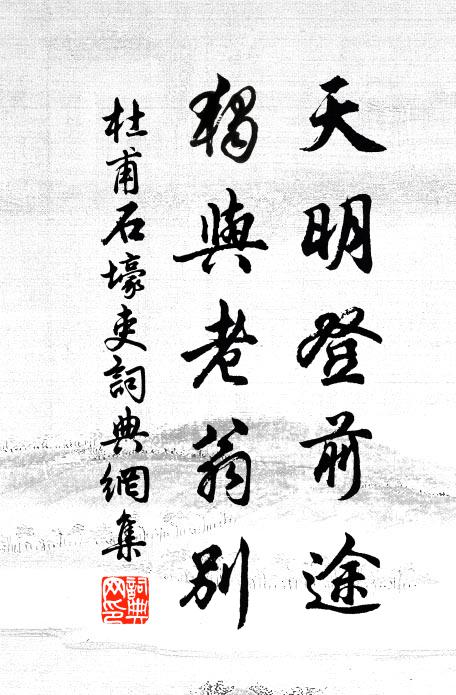 天明登前途
獨與老翁別
杜甫石壕吏詞典網集
詞典
网印